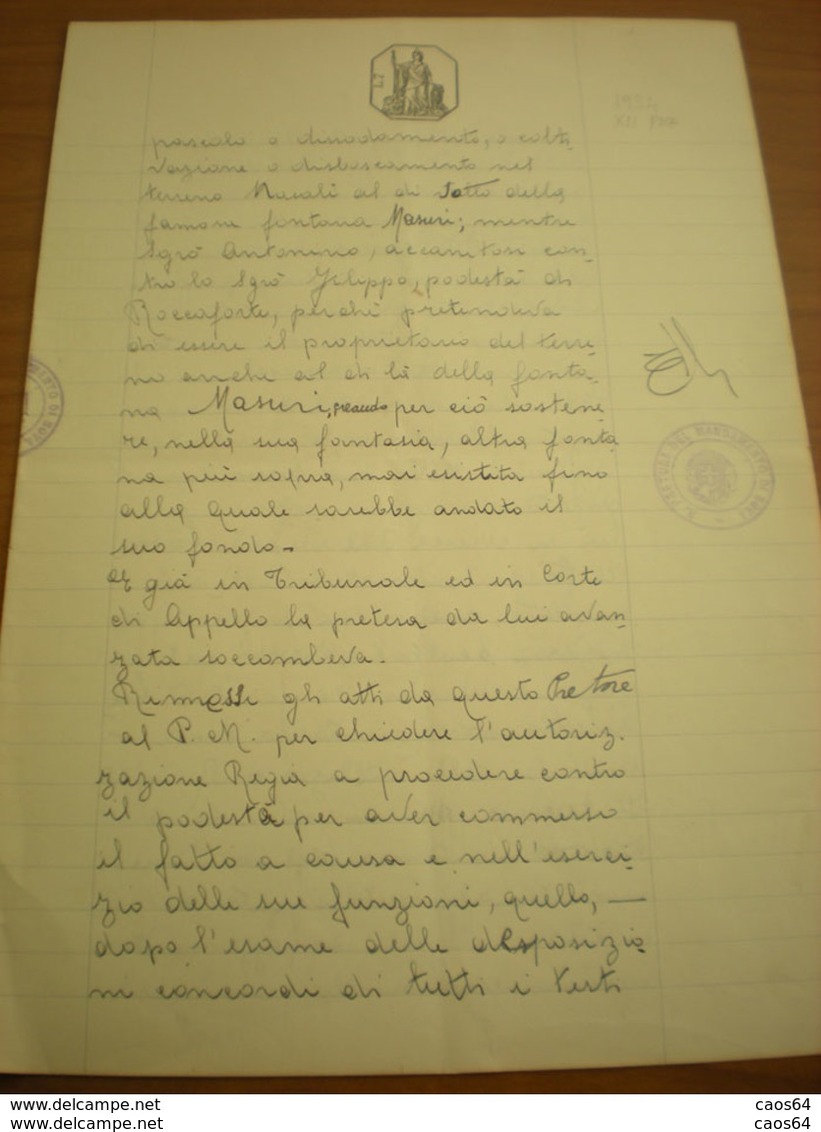 1934
XII
pascolo o dissodamento, o colti-
vazione o disboscamento nel
terreno Masalì al di sotto della
famosa fontana Masuri; mentre
Sgrò Antonino, accanitosi con-
tro lo Sgrò Filippo, podestà di
Roccaforte, perchè pretendeva
di essere il proprietario del terre-
no anche al di là della fonta-
na Masuri, creando per ciò sostene-
re, nella sua fantasia, altra fonta
na più sopra, mai esistita fino
alla quale sarebbe andato il
suo fondo -
E già in Tribunale ed in Corte
di Appello la pretesa da lui avan-
zata soccombeva.
Rimessi gli atti da questo Pretore
al P. M. per chiedere l'autoriz.
zazione Regia a procedere contro
il podestà per aver commesso
il fatto a causa e nell'eserci-
zio delle sue funzioni, quello, —
dopo l'esame delle desposizio
ni concordi di tutti i testi
IL PRETORE DEL MANDAMENTO DI
www.delcampe.net
www.delcampe.net
caos64
caos64